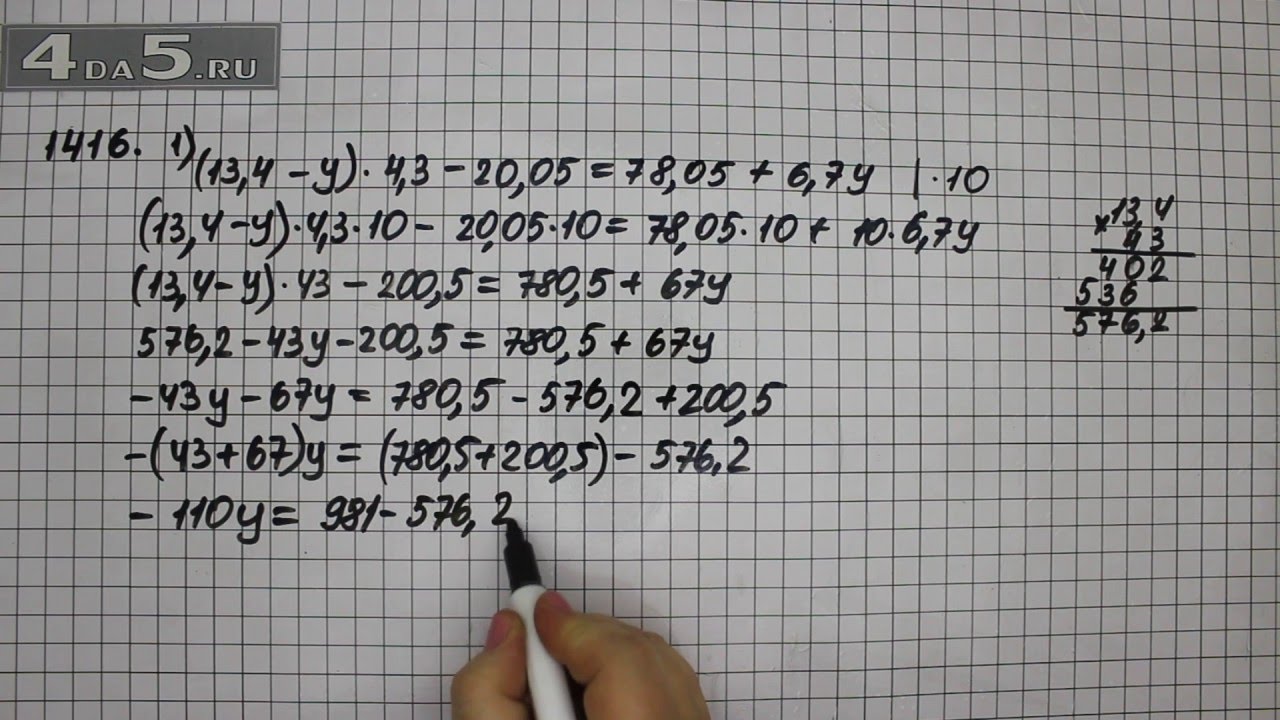 4DA5.RU
1416. 1) (13,4 - y) · 4,3 - 20,05 = 78,05 + 6,7y | · 10
(13,4 - y) · 4,3 · 10 - 20,05 · 10 = 78,05 · 10 + 10 · 6,7y
(13,4 - y) · 43 - 200,5 = 780,5 + 67y
576,2 - 43y - 200,5 = 780,5 + 67y
- 43y - 67y = 780,5 - 576,2 + 200,5
- (43 + 67)y = (780,5 + 200,5) - 576,2
- 110y = 981 - 576,2
13,4
× 43
402
536
576,2